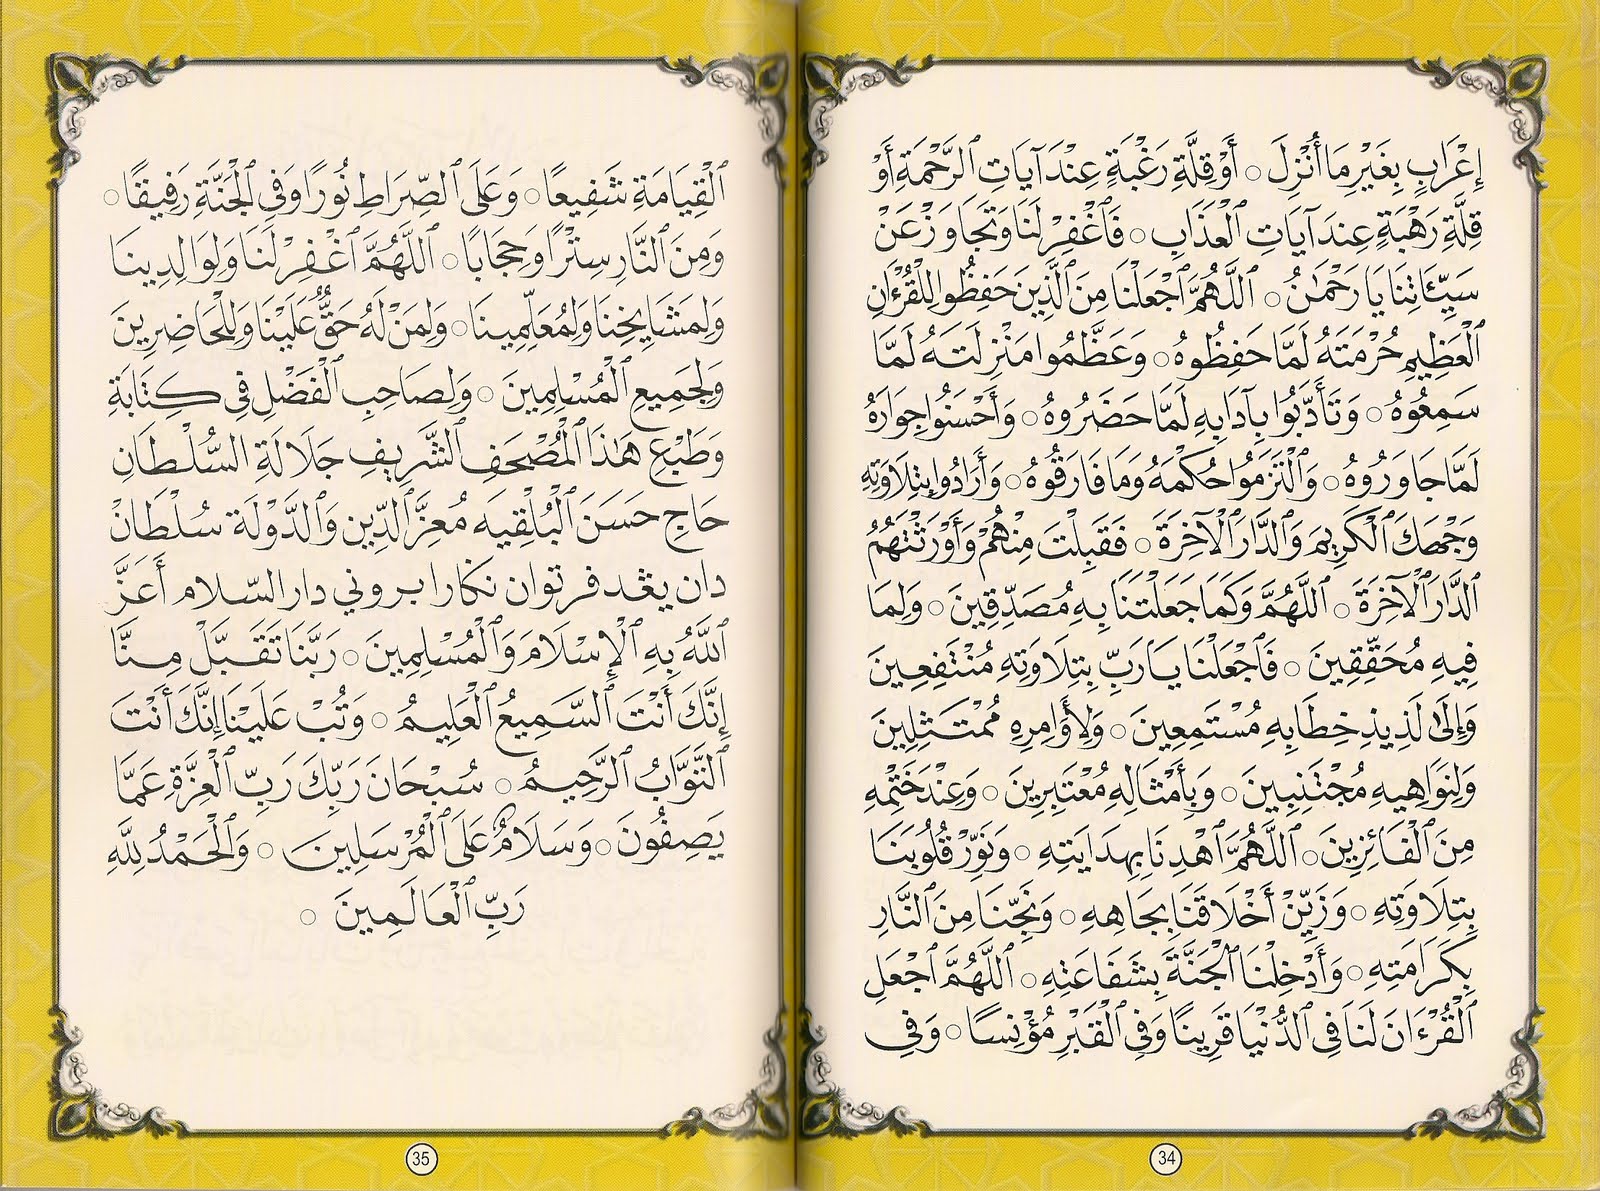 إِعْرَابٍ بِغَيْرِ مَا أُنْزِلَ ○ أَوْ قِلَّةِ رَغْبَةٍ عِنْدَ آيَاتِ ٱلرَّحْمَةِ أَوْ
قِلَّةِ رَهْبَةٍ عِنْدَ آيَاتِ ٱلْعَذَابِ ○ فَٱغْفِرْ لَنَا وَتَجَاوَزْ عَنْ
سَيِّئَاتِنَا يَا رَحْمٰنُ ○ ٱللَّهُمَّ ٱجْعَلْنَا مِنَ ٱلَّذِينَ حَفِظُوا لِلْقُرْءَانِ
ٱلْعَظِيمِ حُرْمَتَهُ لَمَّا حَفِظُوهُ ○ وَعَظَّمُوا مَنْزِلَتَهُ لَمَّا
سَمِعُوهُ ○ وَتَأَدَّبُوا بِآدَابِهِ لَمَّا حَضَرُوهُ ○ وَأَحْسَنُوا جِوَارَهُ
لَمَّا جَاوَرُوهُ ○ وَٱلْتَزَمُوا حُكْمَهُ وَمَا فَارَقُوهُ ○ وَأَرَادُوا بِتِلَاوَتِهِ
وَجْهَكَ ٱلْكَرِيمَ وَٱلدَّارَ ٱلْآخِرَةَ ○ فَقَبِلْتَ مِنْهُمْ وَأَوْرَثْتَهُمُ
ٱلدَّارَ ٱلْآخِرَةَ ○ ٱللَّهُمَّ وَكَمَا جَعَلْتَنَا بِهِ مُصَدِّقِينَ ○ وَلِمَا
فِيهِ مُحَقِّقِينَ ○ فَٱجْعَلْنَا يَا رَبِّ بِتِلَاوَتِهِ مُنْتَفِعِينَ
وَإِلَىٰ لَذِيذِ خِطَابِهِ مُسْتَمِعِينَ ○ وَلِأَوَامِرِهِ مُمْتَثِلِينَ
وَلِنَوَاهِيهِ مُجْتَنِبِينَ ○ وَبِأَمْثَالِهِ مُعْتَبِرِينَ ○ وَعِنْدَ خَتْمِهِ
مِنَ ٱلْفَائِزِينَ ○ ٱللَّهُمَّ ٱهْدِنَا بِهِدَايَتِهِ ○ وَنَوِّرْ قُلُوبَنَا
بِتِلَاوَتِهِ ○ وَزَيِّنْ أَخْلَاقَنَا بِجَاهِهِ ○ وَنَجِّنَا مِنَ ٱلنَّارِ
بِكَرَامَتِهِ ○ وَأَدْخِلْنَا ٱلْجَنَّةَ بِشَفَاعَتِهِ ○ ٱللَّهُمَّ ٱجْعَلِ
ٱلْقُرْءَانَ لَنَا فِي ٱلدُّنْيَا قَرِينًا وَفِي ٱلْقَبْرِ مُؤْنِسًا ○ وَفِي
34
ٱلْقِيَامَةِ شَفِيعًا ○ وَعَلَى ٱلصِّرَاطِ نُورًا وَفِي ٱلْجَنَّةِ رَفِيقًا ○
وَمِنَ ٱلنَّارِ سِتْرًا وَحِجَابًا ○ ٱللَّهُمَّ ٱغْفِرْ لَنَا وَلِوَالِدِينَا
وَلِمَشَايِخِنَا وَلِمُعَلِّمِينَا ○ وَلِمَنْ لَهُ حَقٌّ عَلَيْنَا وَلِلْحَاضِرِينَ
وَلِجَمِيعِ ٱلْمُسْلِمِينَ ○ وَلِصَاحِبِ ٱلْفَضْلِ فِي كِتَابَةِ
وَطَبْعِ هَٰذَا ٱلْمُصْحَفِ ٱلشَّرِيفِ جَلَالَةِ السُّلْطَانِ
حَاجِ حَسَنَ ٱلْبُلْقِيَه مُعِزَّ ٱلدِّينِ وَٱلدَّوْلَة سُلْطَانْ
دان يڠدفرتوان نكارا بروني دار السّلام أَعَزَّ
ٱللَّهُ بِهِ ٱلْإِسْلَامَ وَٱلْمُسْلِمِينَ ○ رَبَّنَا تَقَبَّلْ مِنَّا
إِنَّكَ أَنْتَ ٱلسَّمِيعُ ٱلْعَلِيمُ ○ وَتُبْ عَلَيْنَا إِنَّكَ أَنْتَ
ٱلتَّوَّابُ ٱلرَّحِيمُ ○ سُبْحَانَ رَبِّكَ رَبِّ ٱلْعِزَّةِ عَمَّا
يَصِفُونَ ○ وَسَلَامٌ عَلَى ٱلْمُرْسَلِينَ ○ وَٱلْحَمْدُ لِلَّهِ
رَبِّ ٱلْعَالَمِينَ ○
35